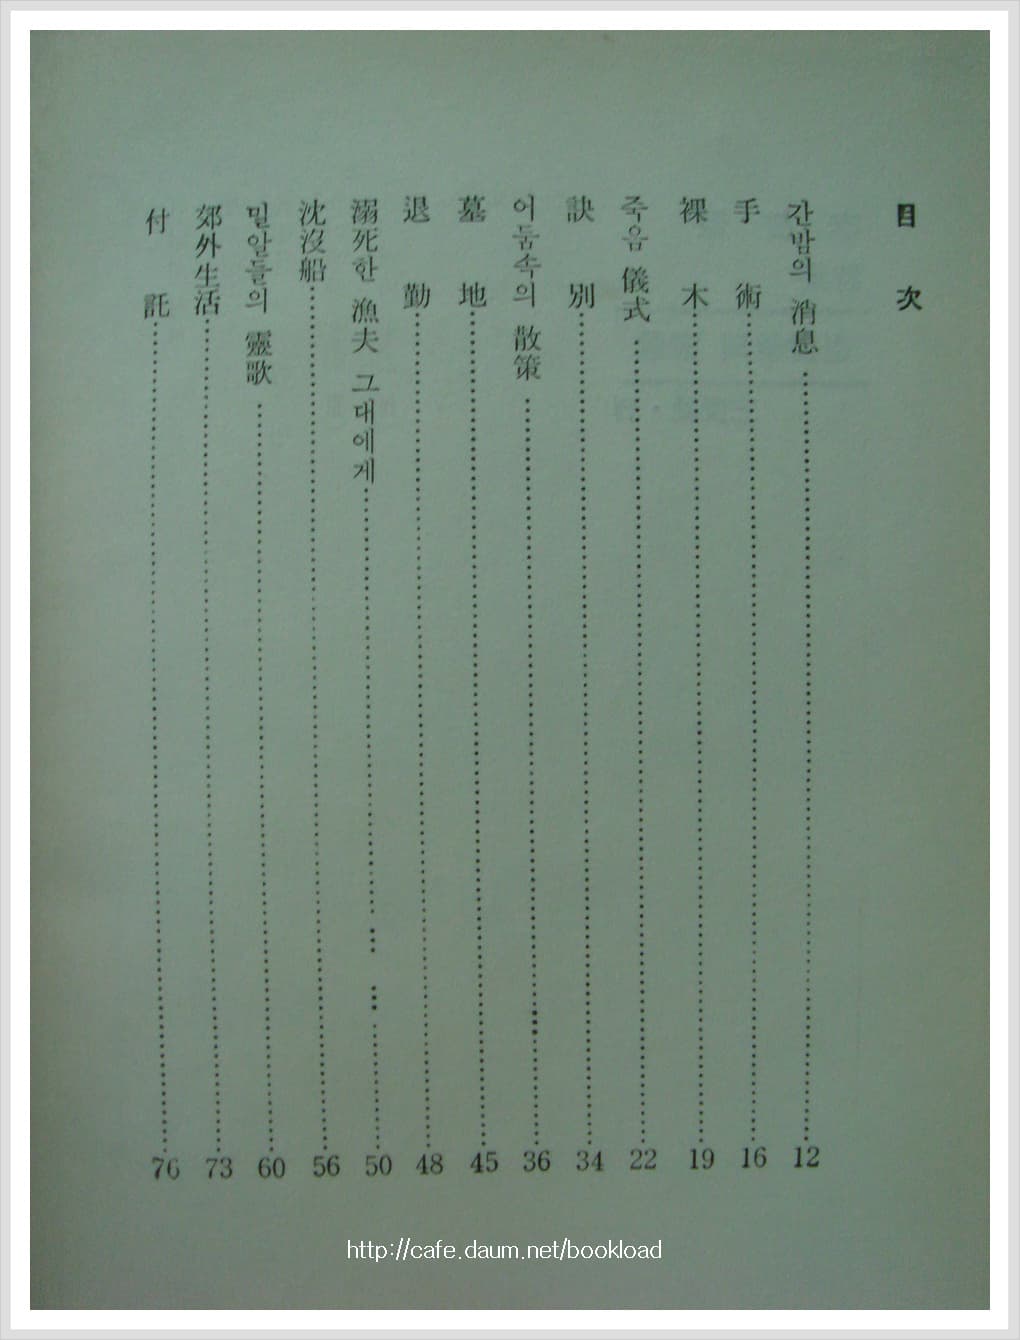 目 次
간밤의 消息 12
手 術 16
裸 木 19
죽음 儀式 22
訣 別 34
어둠속의 散策 36
墓 地 45
退 勤 48
溺死한 漁夫 그대에게 50
沈沒船 56
밀알들의 靈歌 60
郊外生活 73
付 託 76
http://cafe.daum.net/bookload